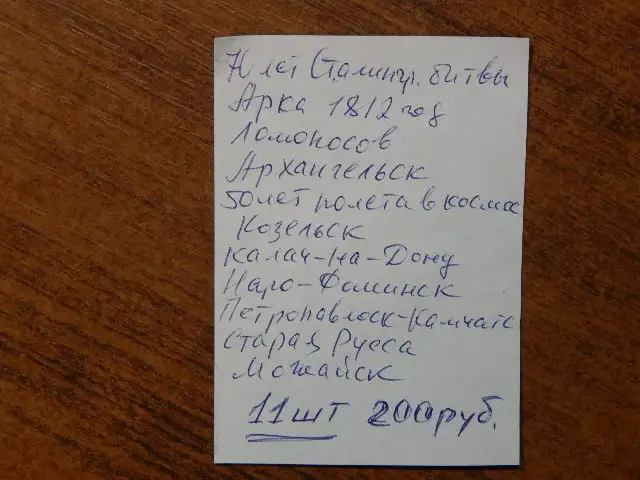 70 лет Сталингр. битвы
Арка 1812 год
Ломоносов
Архангельск
50 лет полета в космос
Козельск
Калач-на-Дону
Наро-Фоминск
Петропавлоск-Камчатс
Старая Русса
Можайск
11 шт 200 руб.